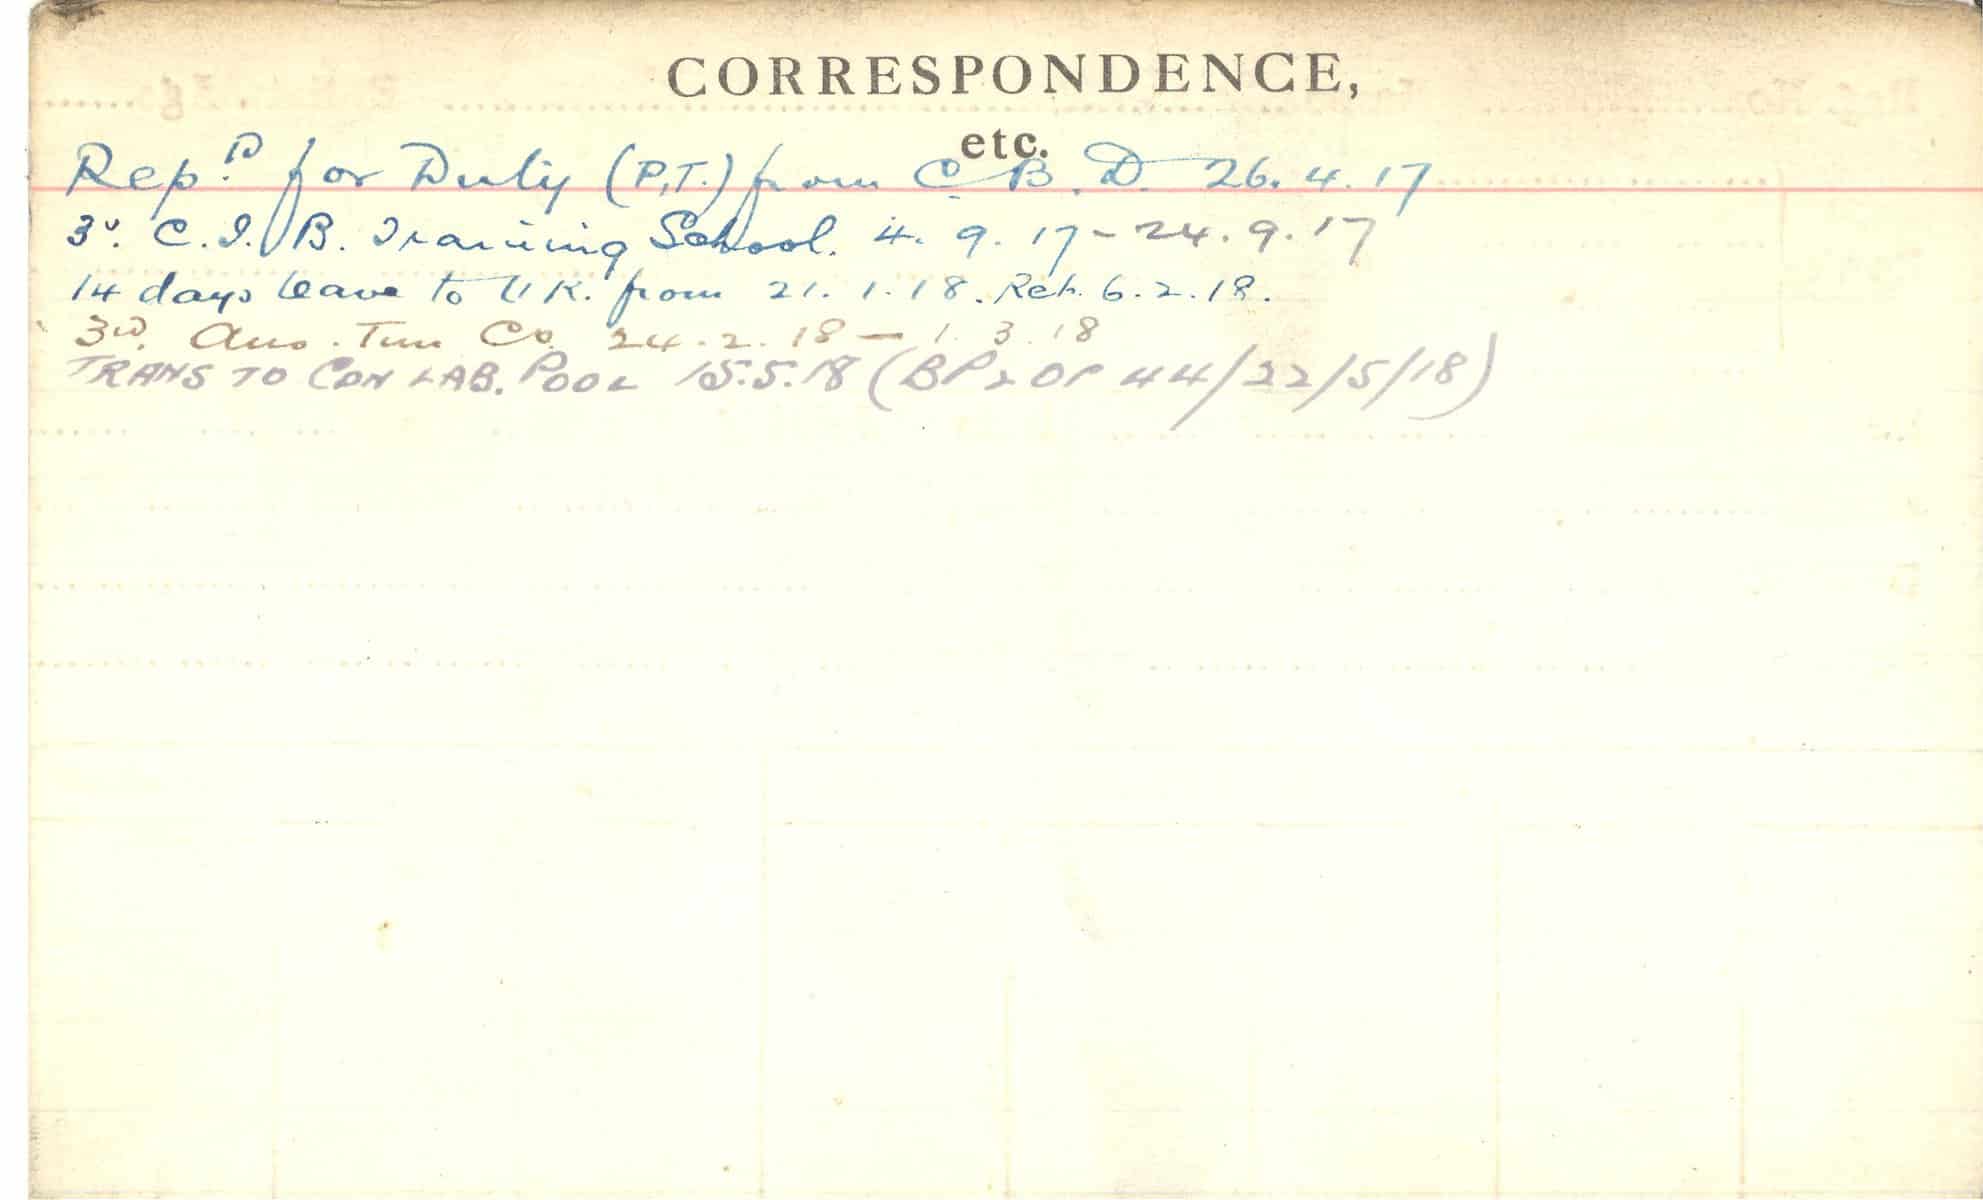 CORRESPONDENCE,
etc.
Repd. for Duty (P.T.) from C.B.D. 26.4.17
3d. C.I.B. Training School. 4.9.17 - 24.9.17
14 days leave to U.K. from 21.1.18. Ret. 6.2.18.
3rd. Aus. Tun Co. 24.2.18 — 1.3.18
TRANS TO CAN LAB. POOL 15.5.18 (BP2 OP 44/22/5/18)